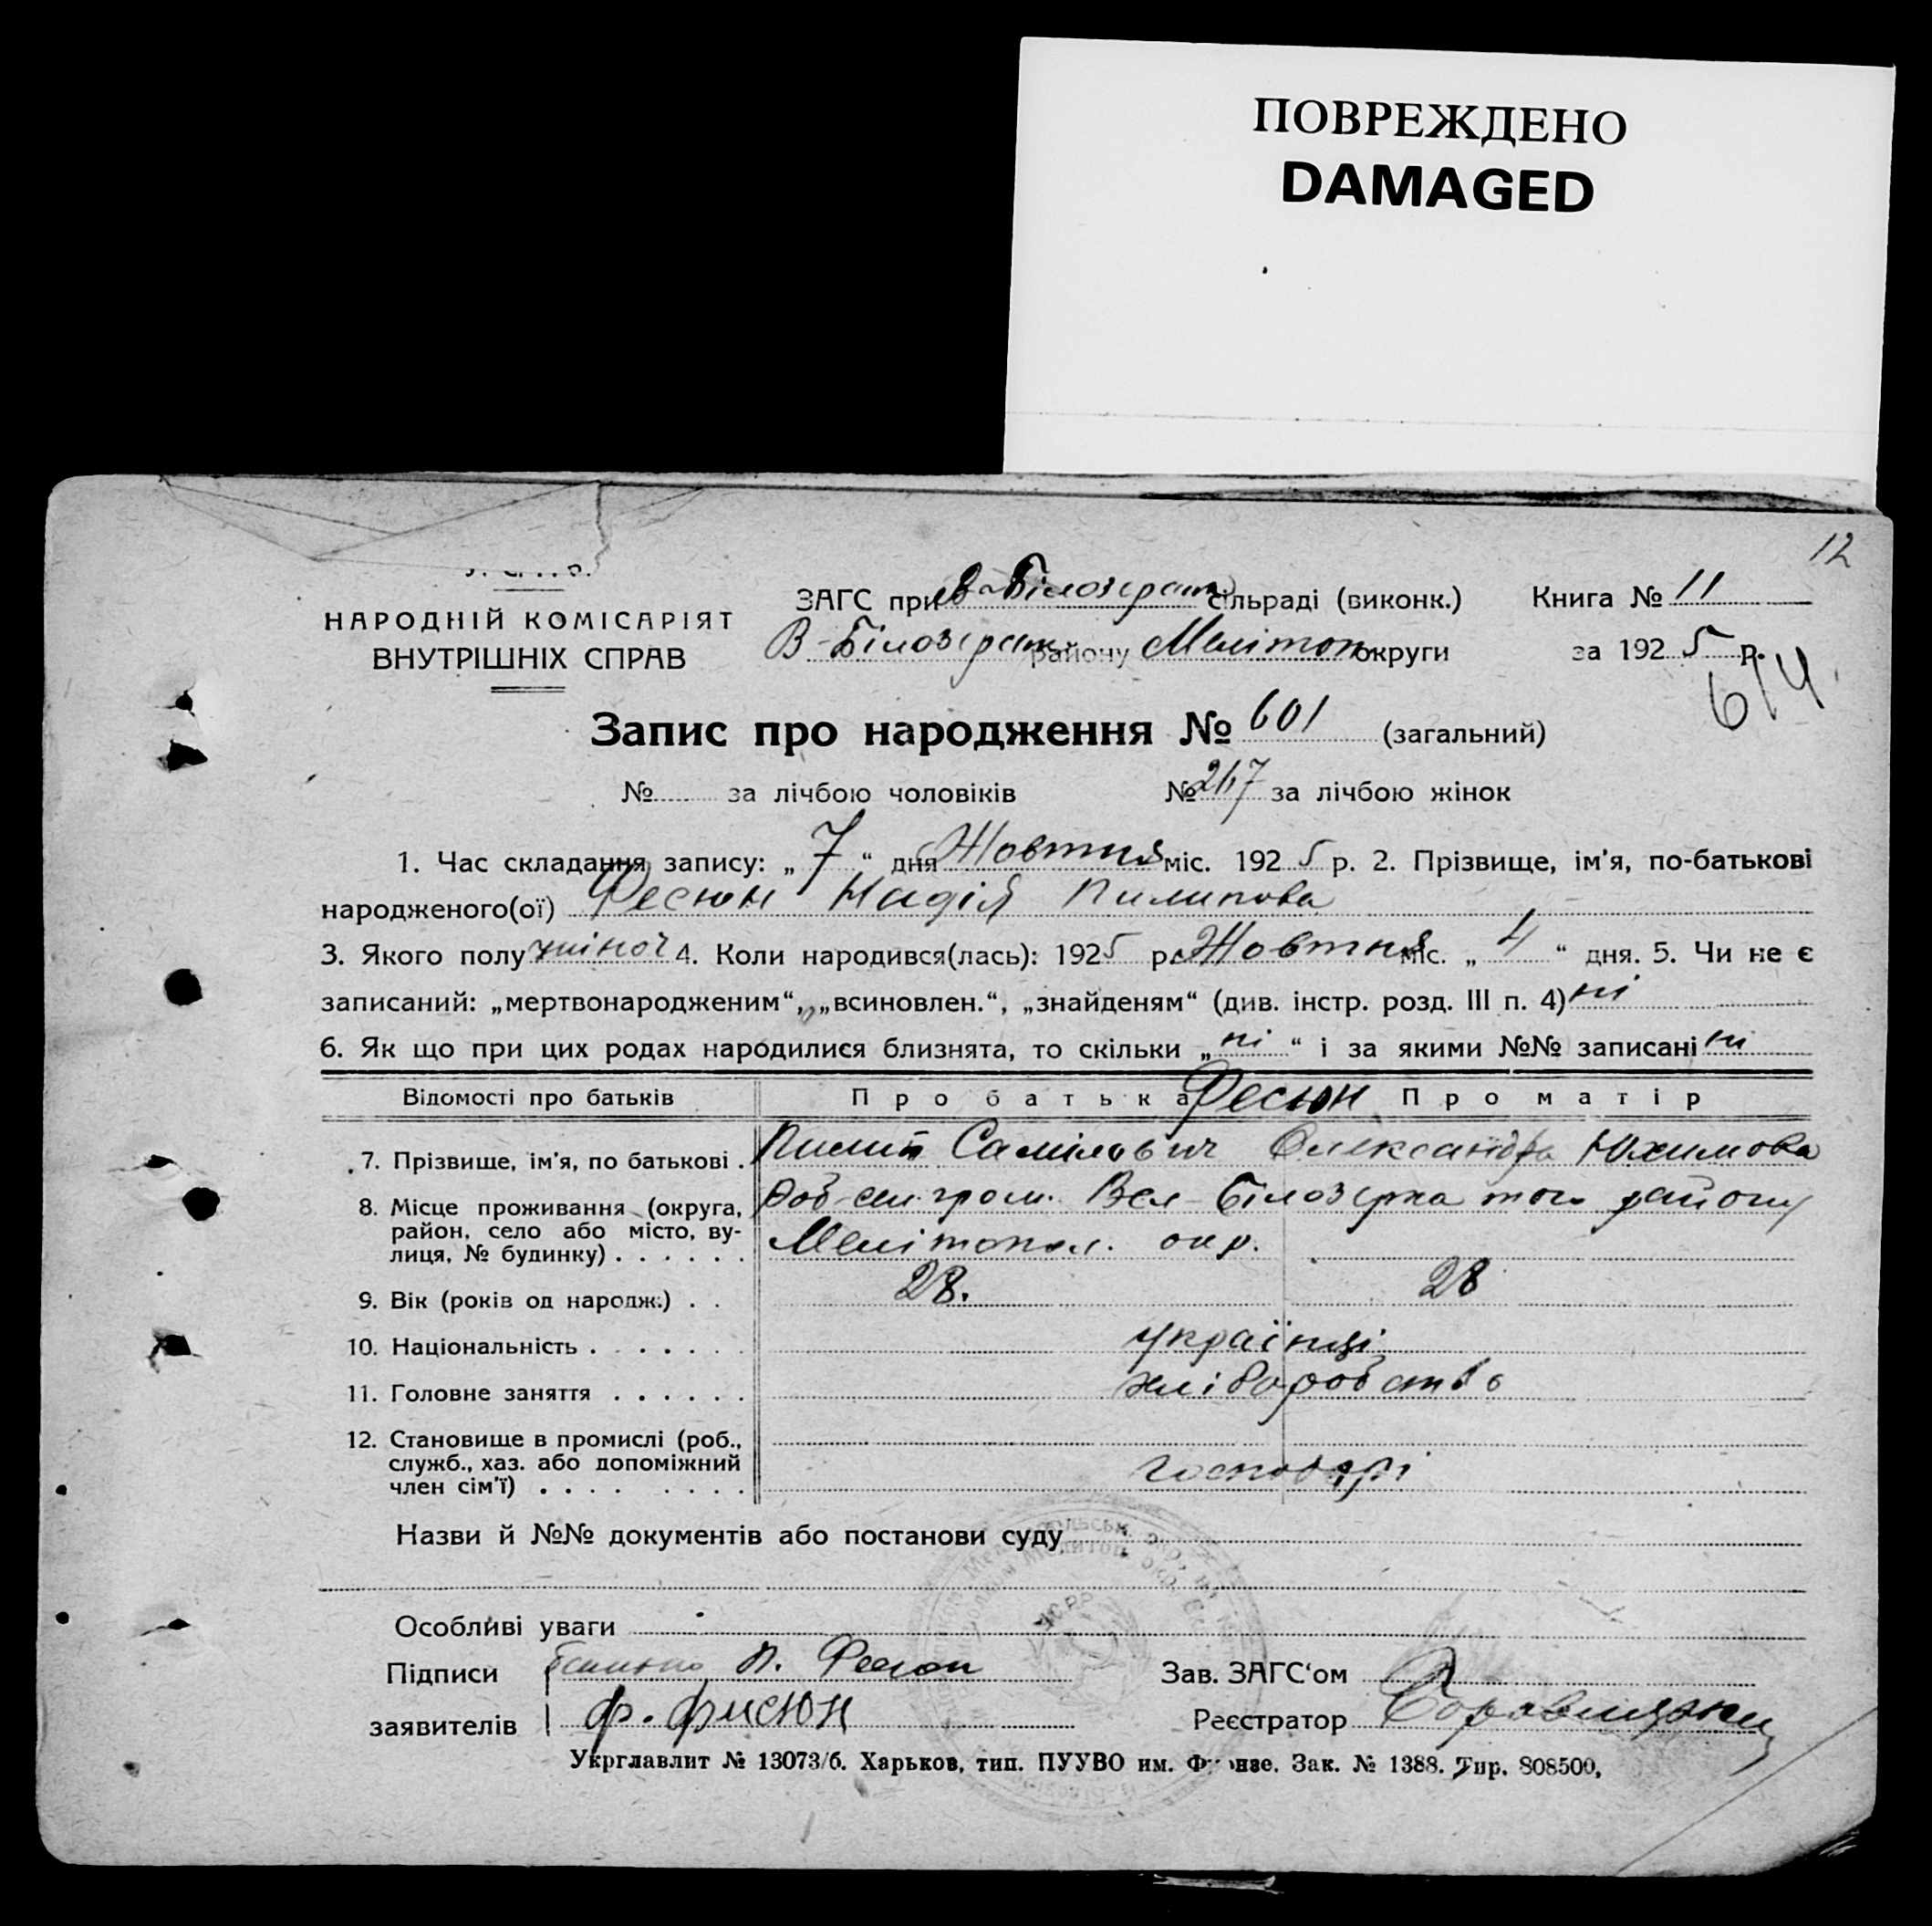 ПОВРЕЖДЕНО
DAMAGED
12
НАРОДНІЙ КОМІСАРІЯТ
ВНУТРІШНІХ СПРАВ
ЗАГС при В-Білозерськ сільраді (виконк.) Книга № 11
В-Білозерськ району Мелітоп округи за 1925 р.
614
Запис про народження № 601 (загальний)
№ за лічбою чоловіків № 267 за лічбою жінок
1. Час складання запису: „7“ дня Жовтня міс. 1925 р. 2. Прізвище, ім'я, по-батькові
народженого(ої) Фесюн Надія Пилипова
3. Якого полу жіноч 4. Коли народився(лась): 1925 р. Жовтня міс. „4“ дня. 5. Чи не є
записаний: „мертвонародженим“, „всиновлен.“, „знайденям“ (див. інстр. розд. III п. 4) ні
6. Як що при цих родах народилися близнята, то скільки „ні“ і за якими №№ записані ні
Відомості про батьків Про батька Фесюн Про матір
7. Прізвище, ім'я, по батькові . Пилип Самілович Олександра Юхимова
8. Місце проживання (округа, район, село або місто, вулиця, № будинку) . . . . . . сел. гром. Вел-Білозерка того району
Мелітопол. окр.
9. Вік (років од народж.) . . 28. 28
10. Національність . . . . . . . українці
11. Головне заняття . . . . . . хліборобство
12. Становище в промислі (роб., служб., хаз. або допоміжний член сім'ї) . . . . . . . . господарі
Назви й №№ документів або постанови суду
Особливі уваги
Підписи П. Фесюн Зав. ЗАГС'ом
заявителів Ф. Фисюн Реєстратор
Укрглавлит № 13073/б. Харьков, тип. ПУУВО им. Фрунзе. Зак. № 1388. Тир. 808500,